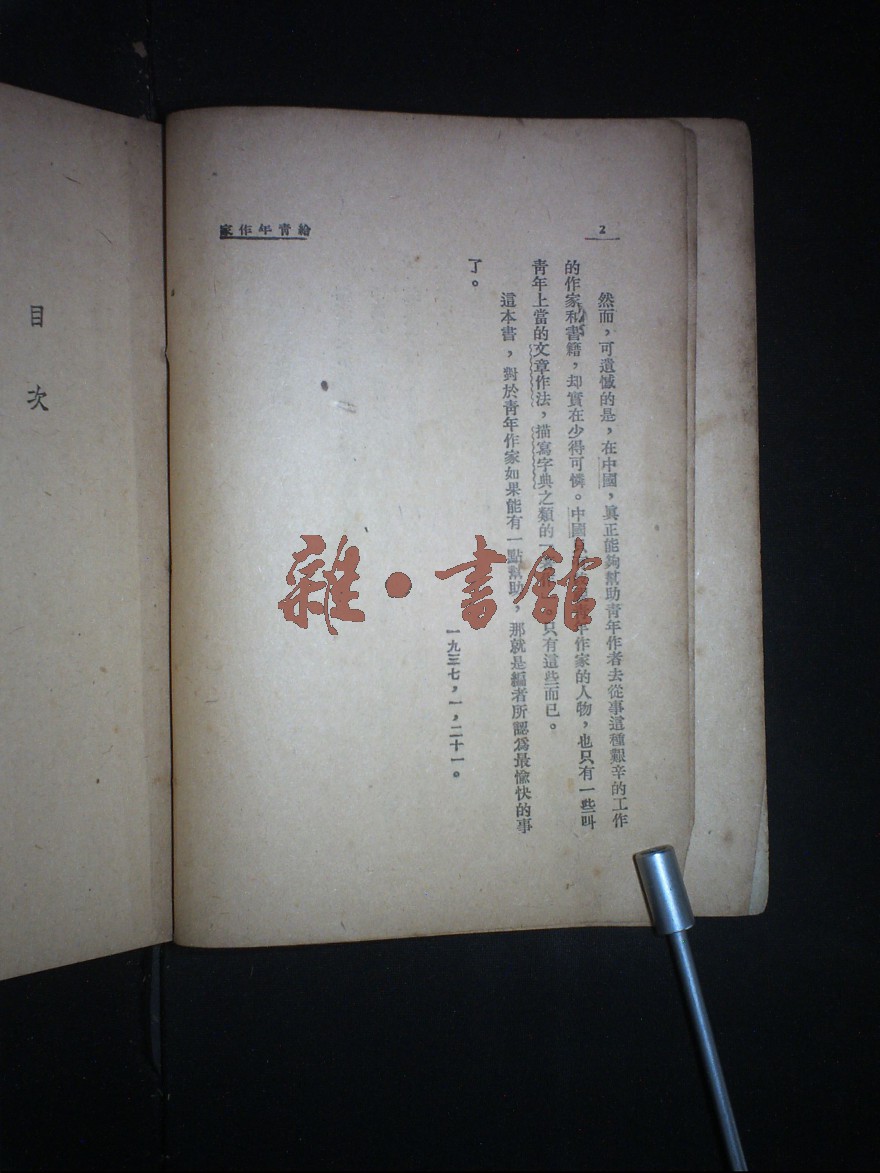 2
給青年作家
然而，可遺憾的是，在中國，眞正能夠幫助青年作者去從事這種艱辛的工作
的作家和書籍，却實在少得可憐。中國年作家的人物，也只有一些叫
青年上當的文章作法，描寫字典之類的只有這些而已。
這本書，對於青年作家如果能有一點幫助，那就是編者所認爲最愉快的事
了。
一九三七，一，二十一。
目次
雜·書館